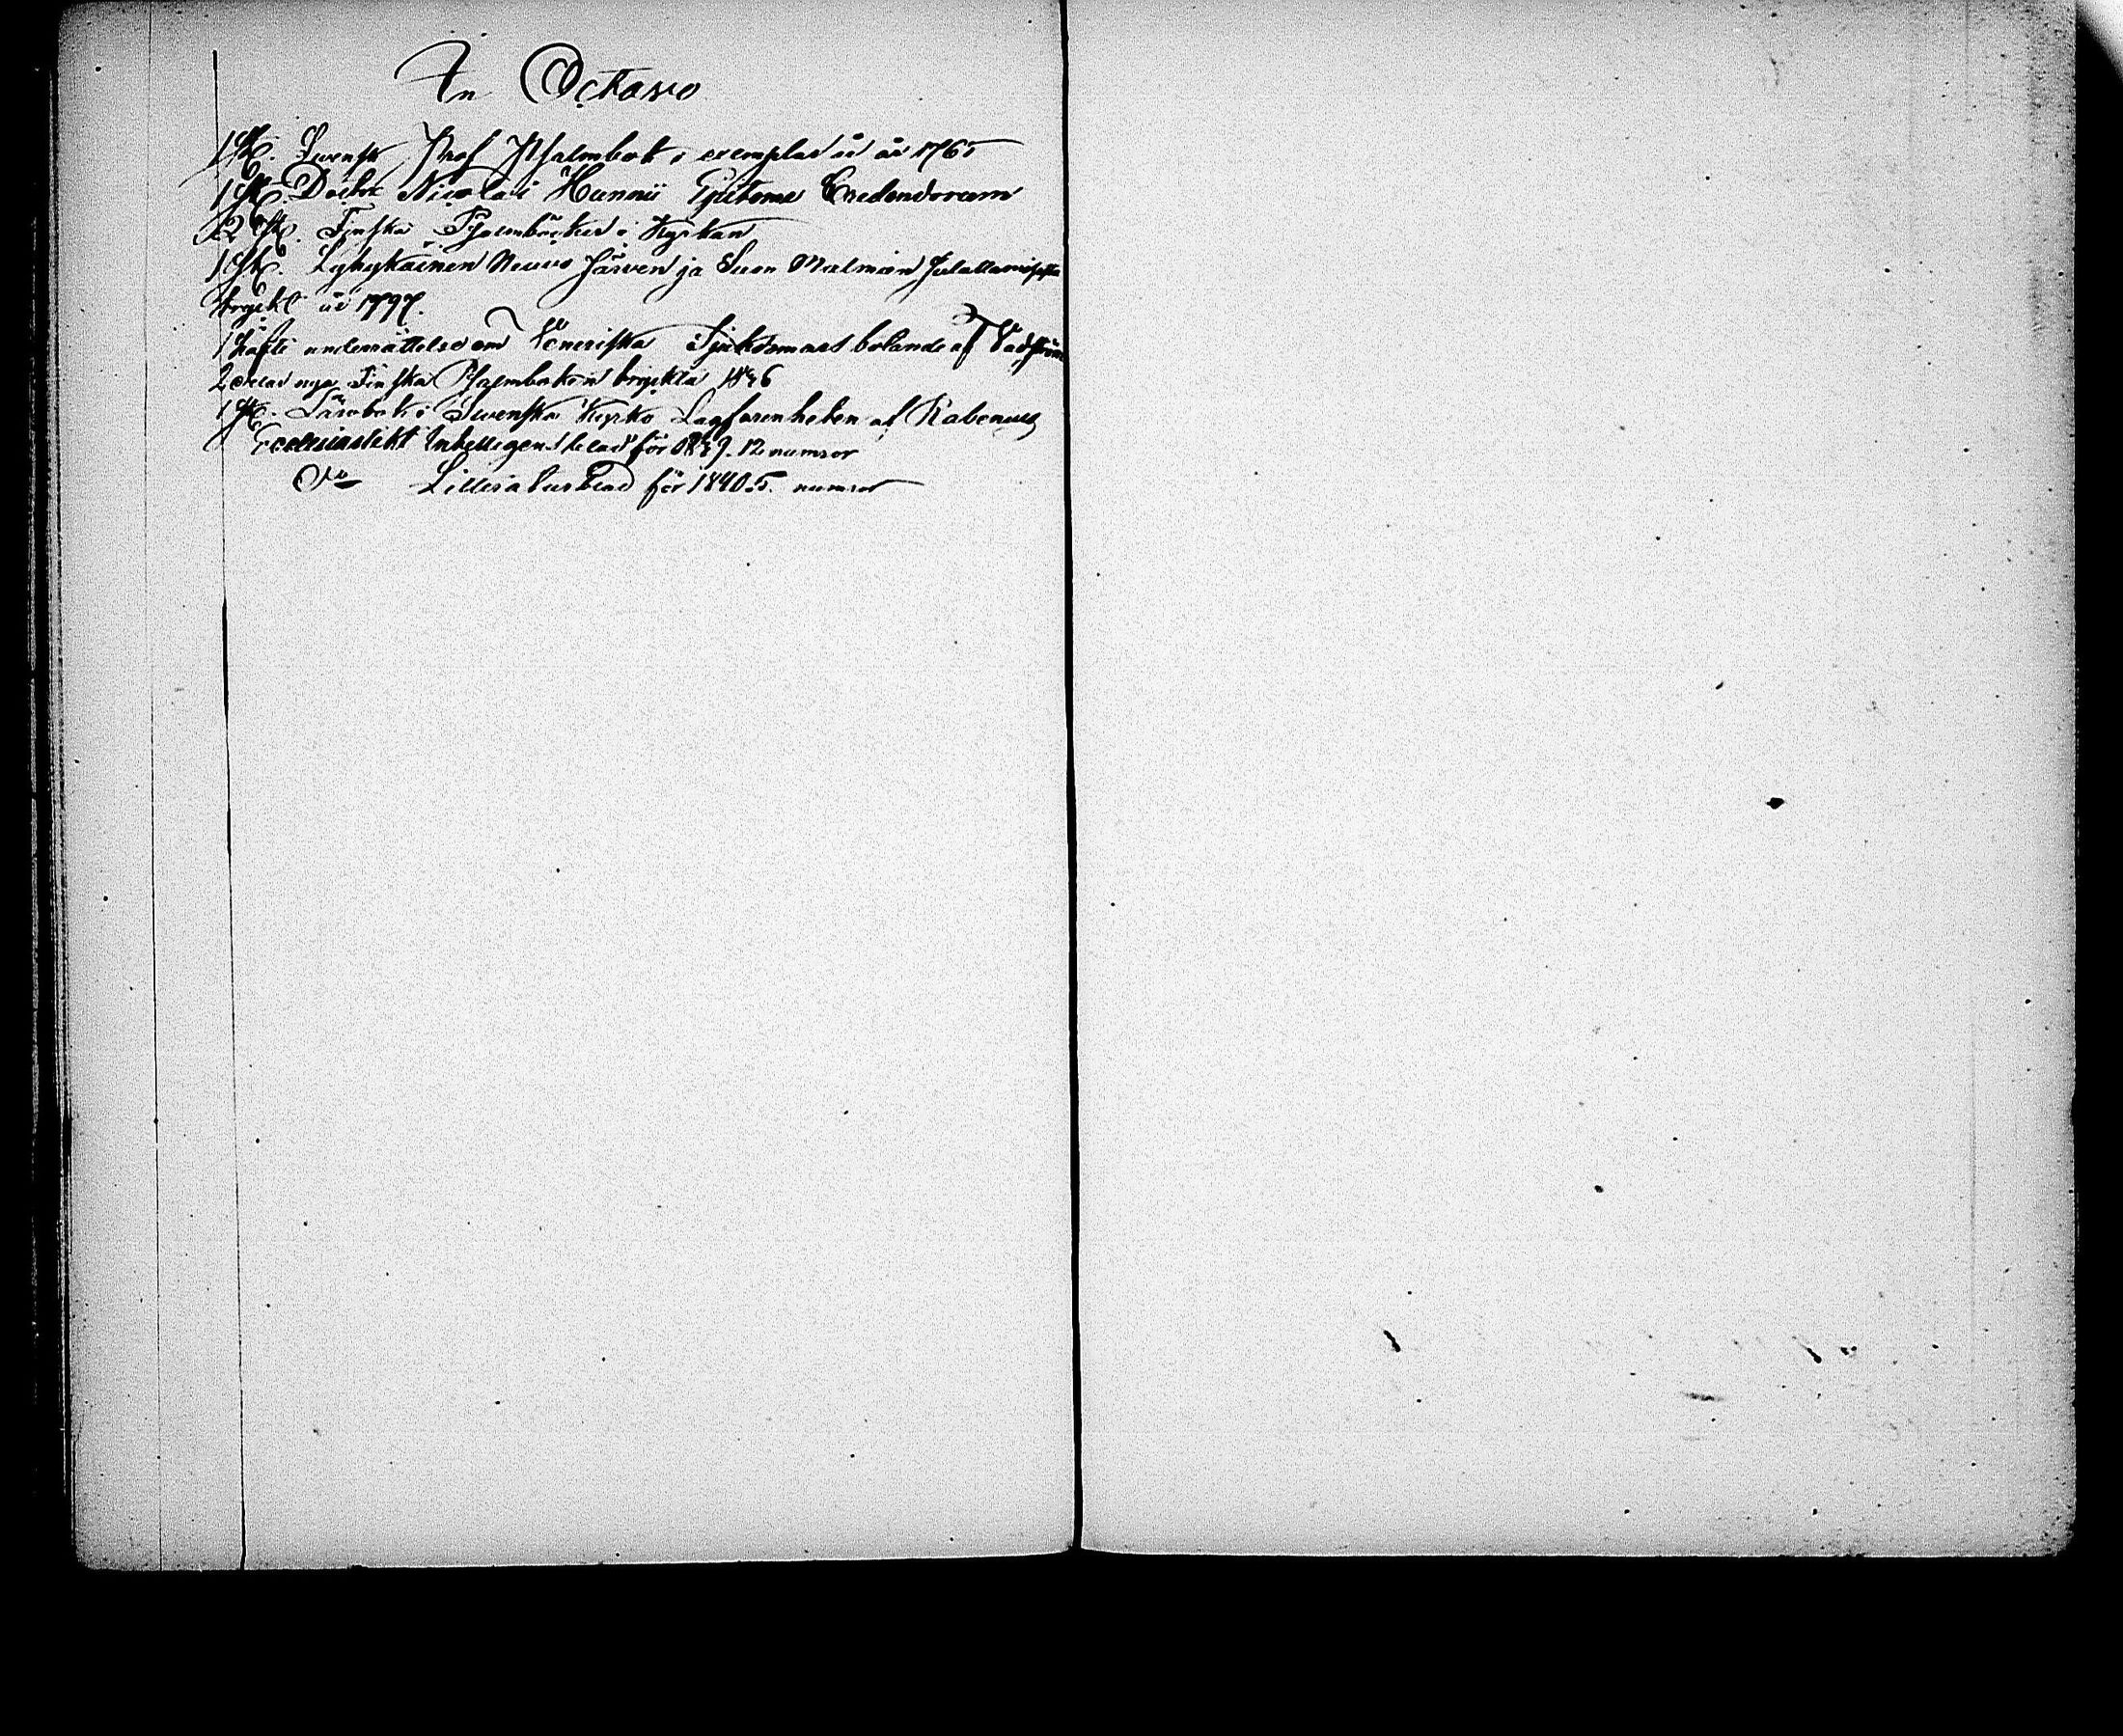 In Octavo
1 St. Svensk Prof Psalmbok i exemplar ii år 1765
1 St. Doctor Nicolai Hunnii Epitome Credendorum
2 St. Finska Psalmböcker i Kyrkan
1 St. Lyhykäinen Neuvo Järven ja Suon Malmin Sulattamisesta
trykt år 1797.
1 häfte underrättelse om Veneriska Sjukdomars botande af
2 delar nya Finska Psalmboken tryckta 1836
1 St. Lärobok i Svenska Kyrko Lagfarenheten af Rabenius
Ecclesiastikt Intelligens blad för 1839. 12 numror
Do Litteraturblad för 1840. 5. numror